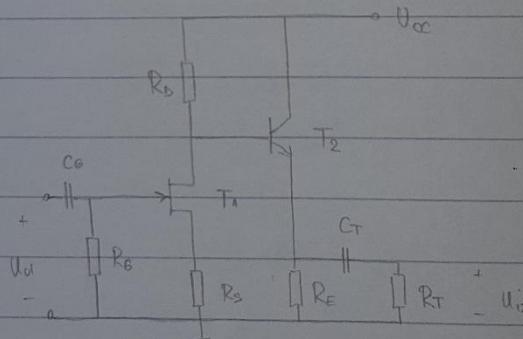 Ucc
RD
T2
CG
T1
CT
+
+
Uul
RG
RS
RE
RT
Uiz
-
-